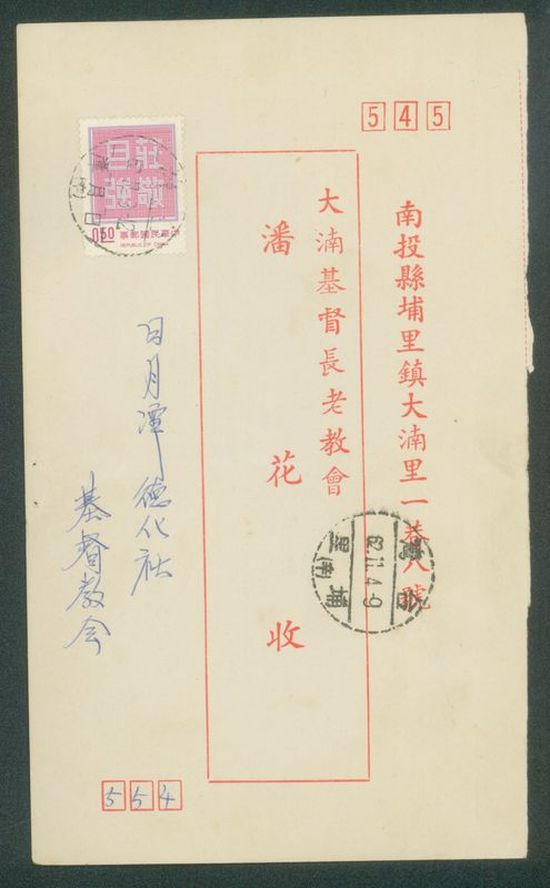 545
南投縣埔里鎮大湳里一巷八號
大湳基督長老教會
潘花 收
莊敬自強
中華民國郵票
REPUBLIC OF CHINA
0.50
日月潭德化社
基督教会
554
台灣
62.11.4-9
埔里